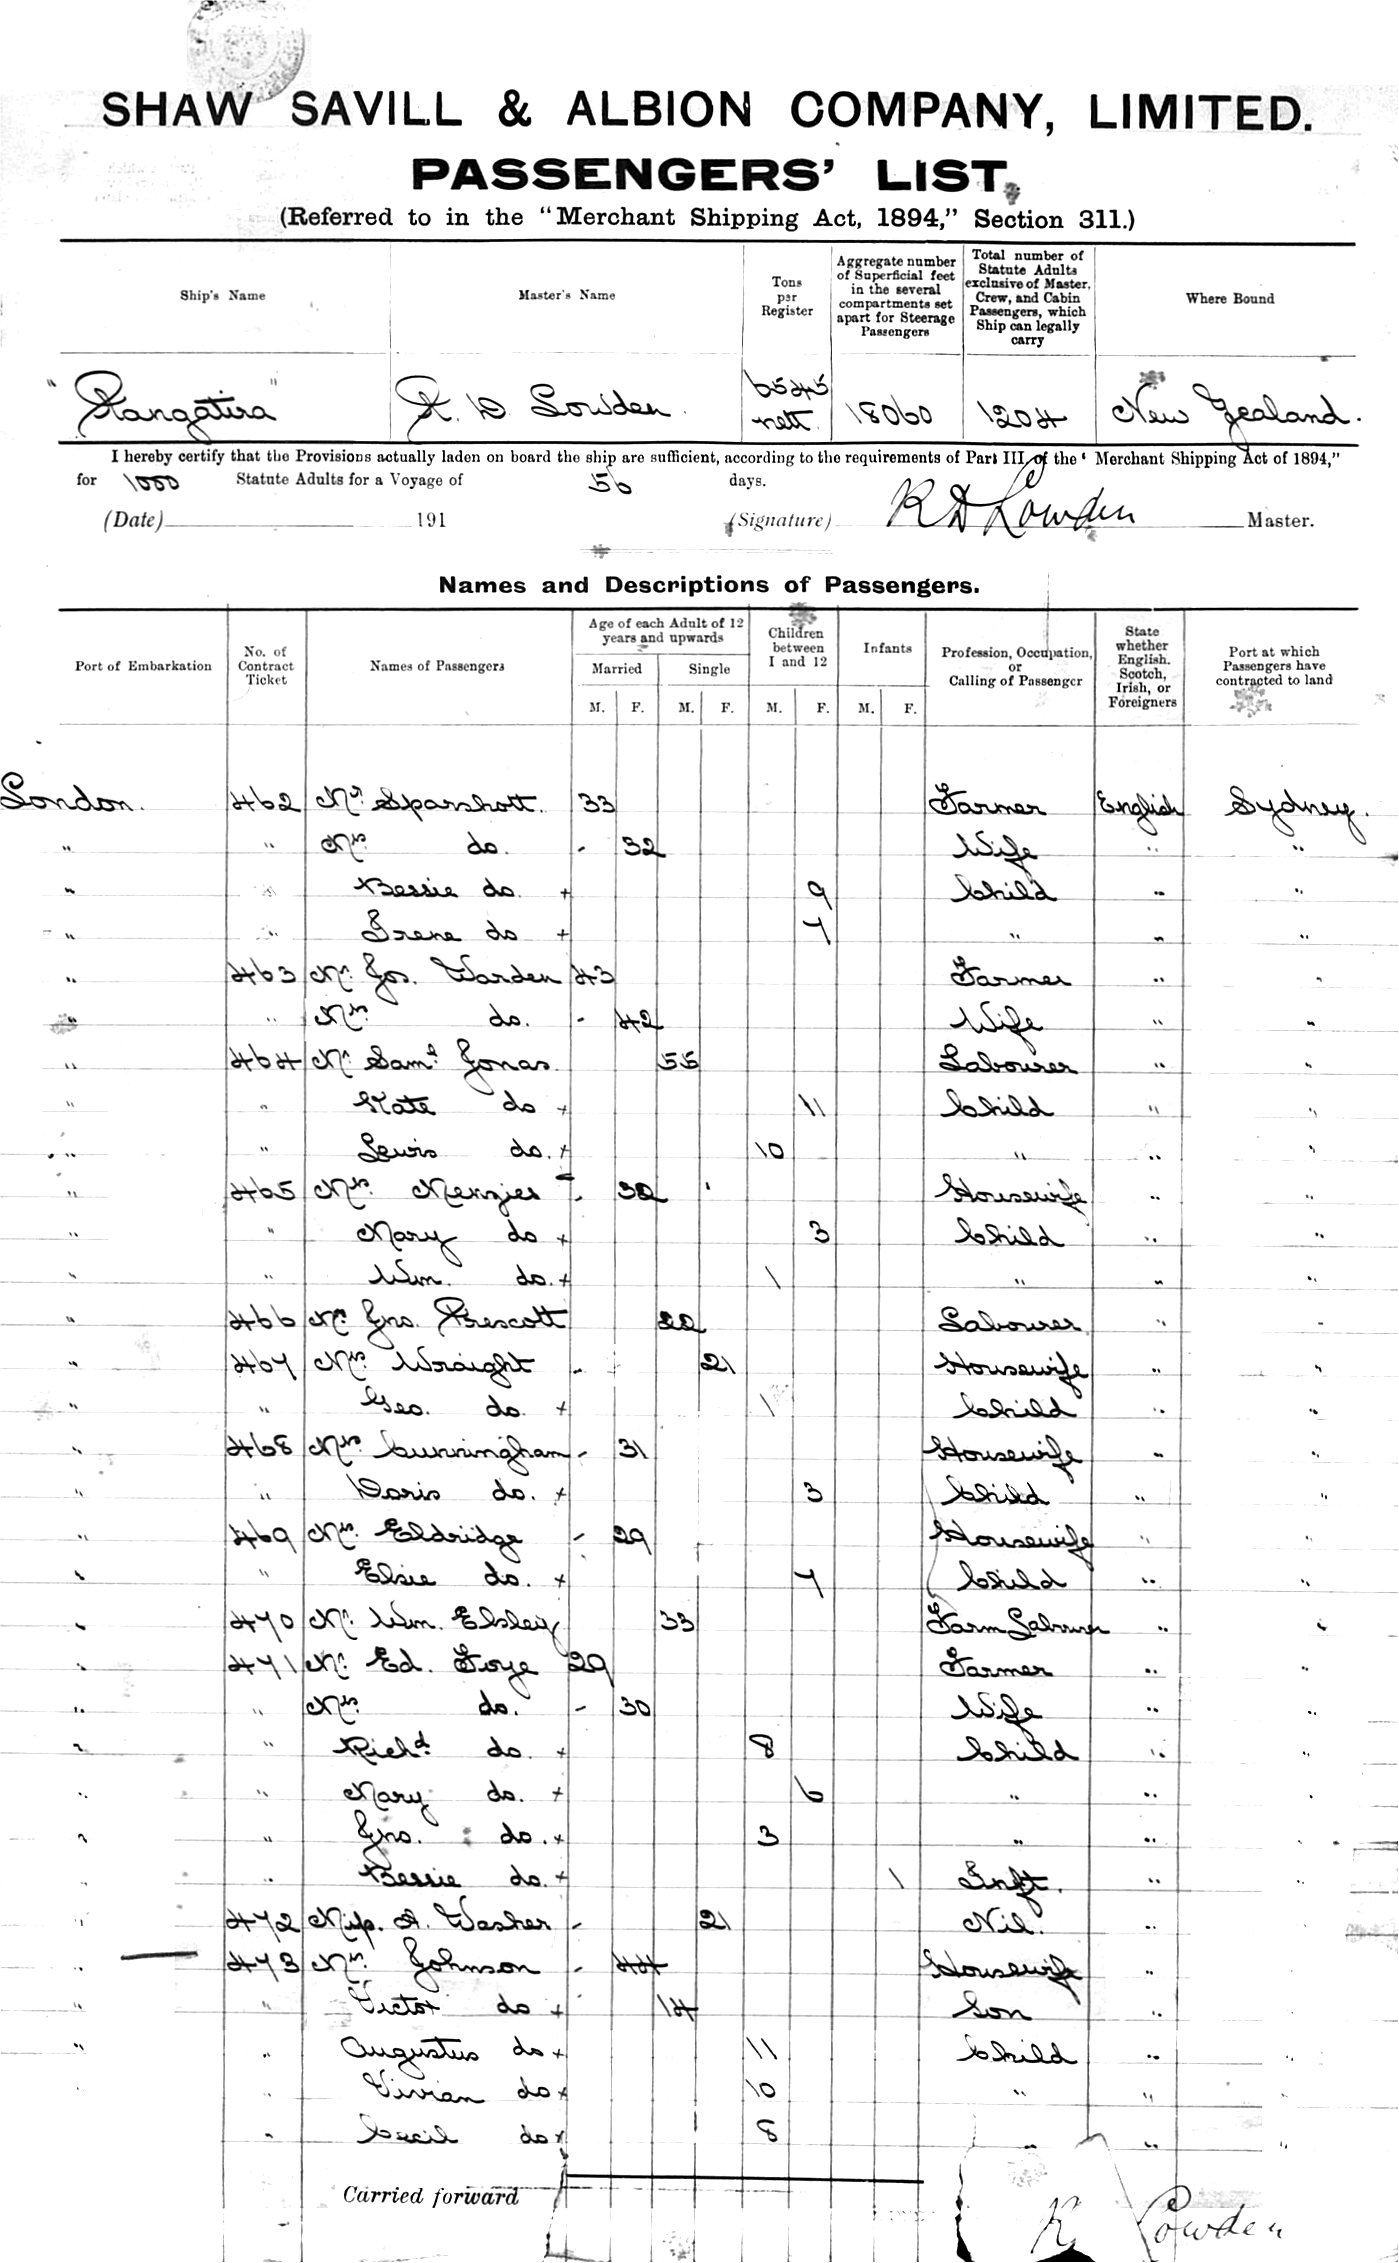 SHAW SAVILL & ALBION COMPANY, LIMITED.
PASSENGERS' LIST,
(Referred to in the "Merchant Shipping Act, 1894," Section 311.)
Ship's Name
Master's Name
Tons per Register
Aggregate number of Superficial feet in the several compartments set apart for Steerage Passengers
Total number of Statute Adults exclusive of Master, Crew, and Cabin Passengers, which Ship can legally carry
Where Bound
"Rangatira" R. D Lowden. 6545 nett. 18060 1204 New Zealand.
I hereby certify that the Provisions actually laden on board the ship are sufficient, according to the requirements of Part III of the "Merchant Shipping Act of 1894,"
for 1000 Statute Adults for a Voyage of 56 days.
(Date) 191 (Signature) R D Lowden Master.
Names and Descriptions of Passengers.
Port of Embarkation
No. of Contract Ticket
Names of Passengers
Age of each Adult of 12 years and upwards
Married Single
Children between 1 and 12
Infants
Profession, Occupation, or Calling of Passenger
State whether English, Scotch, Irish, or Foreigners
Port at which Passengers have contracted to land
M. F. M. F. M. F. M. F.
London. 462 Mr Sparshott. 33 Farmer English Sydney.
" " Mrs do. - 32 Wife " "
" " Bessie do. + 9 Child " "
" " Irene do + 7 " " "
" 463 Mr. Jos. Warden 43 Farmer " "
" " Mrs do. - 42 Wife " "
" 464 Mr. Saml. Jonas 55 Labourer " "
" " Kate do + 11 Child " "
" " Lewis do. + 10 " " "
" 465 Mrs. Menzies - 32 Housewife " "
" " Mary do + 3 Child " "
" " Wm. do. + 1 " " "
" 466 Mr. Jno. Prescott 22 Labourer " "
" 467 Mrs. Wraight - 21 Housewife " "
" " Geo. do. + 1 Child " "
" 468 Mrs. Cunningham - 31 Housewife " "
" " Doris do. + 3 Child " "
" 469 Mrs. Eldridge - 29 Housewife " "
" " Elsie do. + 7 Child " "
" 470 Mr. Wm. Elsley 33 Farm Labourer " "
" 471 Mr. Ed. Foye 29 Farmer " "
" " Mrs. do. - 30 Wife " "
" " Richd. do. + 8 Child " "
" " Mary do. + 6 " " "
" " Jno. do. + 3 " " "
" " Bessie do. + 1 Inft. " "
" 472 Miss. A. Washer - 21 Nil. " "
" 473 Mrs. Johnson - 44 Housewife " "
" " Victor do + 14 Son " "
" " Augustus do + 11 Child " "
" Vivian do + 10 " " "
" Cecil do + 8 " " "
Carried forward
R Lowden